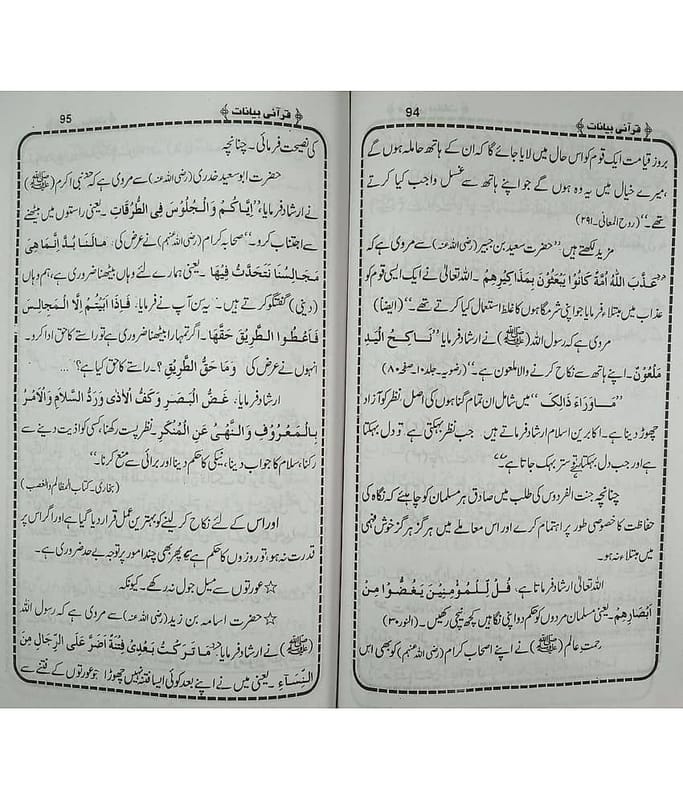 94
﴿قرآنی بیانات﴾
بروز قیامت ایک قوم کو اس حال میں لایا جائے گا کہ ان کے ہاتھ حاملہ ہوں گے
،میرے خیال میں یہ وہ ہوں گے جو اپنے ہاتھ سے غسل واجب کیا کرتے
تھے۔" (روح المعانی۔۲۹۱)
مزید لکھتے ہیں "حضرت سعید بن جبیر (رضی اللہ عنہ) سے مروی ہے کہ
"عَذَّبَ اللّٰهُ اُمَّةً كَانُوْا يَعْبَثُوْنَ بِمَذَاكِيْرِهِمْ۔ اللہ تعالیٰ نے ایک ایسی قوم کو
عذاب میں مبتلاء فرمایا جو اپنی شرمگاہوں کا غلط استعمال کیا کرتے تھے۔" (ایضاً)
مروی ہے کہ رسول اللہ (ﷺ) نے ارشاد فرمایا" نَاكِحُ الْيَدِ
مَلْعُوْنٌ۔ اپنے ہاتھ سے نکاح کرنے والا ملعون ہے۔" (رضویہ۔جلد۱۰۔صفحہ۸۰)
"مَاوَرَاءَ ذَالِكَ" میں شامل ان تمام گناہوں کی اصل نظر کو آزاد
چھوڑ دینا ہے۔ اکابرین اسلام ارشاد فرماتے ہیں جب نظر بہکتی ہے تو دل بہکتا
ہے اور جب دل بہکتا ہے تو ستر بہک جاتا ہے۔"
چنانچہ جنت الفردوس کی طلب میں صادق ہر مسلمان کو چاہئیے کہ نگاہ کی
حفاظت کا خصوصی طور پر اہتمام کرے اور اس معاملے میں ہرگز ہرگز خوش فہمی
میں مبتلاء نہ ہو۔
اللہ تعالیٰ ارشاد فرماتا ہے، قُلْ لِّلْمُؤْمِنِيْنَ يَغُضُّوْا مِنْ
اَبْصَارِهِمْ۔ یعنی مسلمان مردوں کو حکم دو اپنی نگاہیں کچھ نیچی رکھیں۔ (النور۔۳۰)
رحمت عالم (ﷺ) نے اپنے اصحاب کرام (رضی اللہ عنہم) کو بھی اس
95
﴿قرآنی بیانات﴾
کی نصیحت فرمائی۔ چنانچہ
حضرت ابو سعید خدری (رضی اللہ عنہ) سے مروی ہے کہ نبی اکرم (ﷺ)
نے ارشاد فرمایا، "اِيَّاكُمْ وَالْجُلُوْسَ فِى الطُّرُقَاتِ۔ یعنی راستوں میں بیٹھنے
سے اجتناب کرو۔" صحابہ کرام (رضی اللہ عنہم) نے عرض کی مَالَنَا بُدٌّ اِنَّمَا هِيَ
مَجَالِسُنَا نَتَحَدَّثُ فِيْهَا۔ یعنی ہمارے لئے وہاں بیٹھنا ضروری ہے، ہم وہاں
(دینی) گفتگو کرتے ہیں۔ یہ سن آپ نے فرمایا، فَاِذَا اَبَيْتُمْ اِلَّا الْمَجَالِسَ
فَاَعْطُوا الطَّرِيْقَ حَقَّهَا۔ اگر تمہارا بیٹھنا ضروری ہے تو راستے کا حق ادا کرو۔
انہوں نے عرض کی وَمَا حَقُّ الطَّرِيْقِ؟۔ راستے کا حق کیا ہے؟"...
ارشاد فرمایا، غَضُّ الْبَصَرِ وَكَفُّ الْاَذٰى وَرَدُّ السَّلَامِ وَالْاَمْرُ
بِالْمَعْرُوْفِ وَالنَّهْىُ عَنِ الْمُنْكَرِ۔ نظر پست رکھنا، کسی کو اذیت دینے سے
رکنا، سلام کا جواب دینا، نیکی کا حکم دینا اور برائی سے منع کرنا۔"
(بخاری۔ کتاب المظالم والغصب)
اور اس کے لئے نکاح کر لینے کو بہترین عمل قرار دیا گیا ہے اور اگر اس پر
قدرت نہ ہو، تو روزوں کا حکم ہے، پھر بھی چند امور پر توجہ بے حد ضروری ہے۔
☆ عورتوں سے میل جول نہ رکھے۔ کیونکہ
☆ حضرت اسامہ بن زید (رضی اللہ عنہ) سے مروی ہے کہ رسول اللہ
(ﷺ) نے ارشاد فرمایا" مَا تَرَكْتُ بَعْدِىْ فِتْنَةً اَضَرَّ عَلَى الرِّجَالِ مِنَ
النِّسَآءِ۔ یعنی میں نے اپنے بعد کوئی ایسا فتنہ نہیں چھوڑا جو عورتوں کے فتنے سے